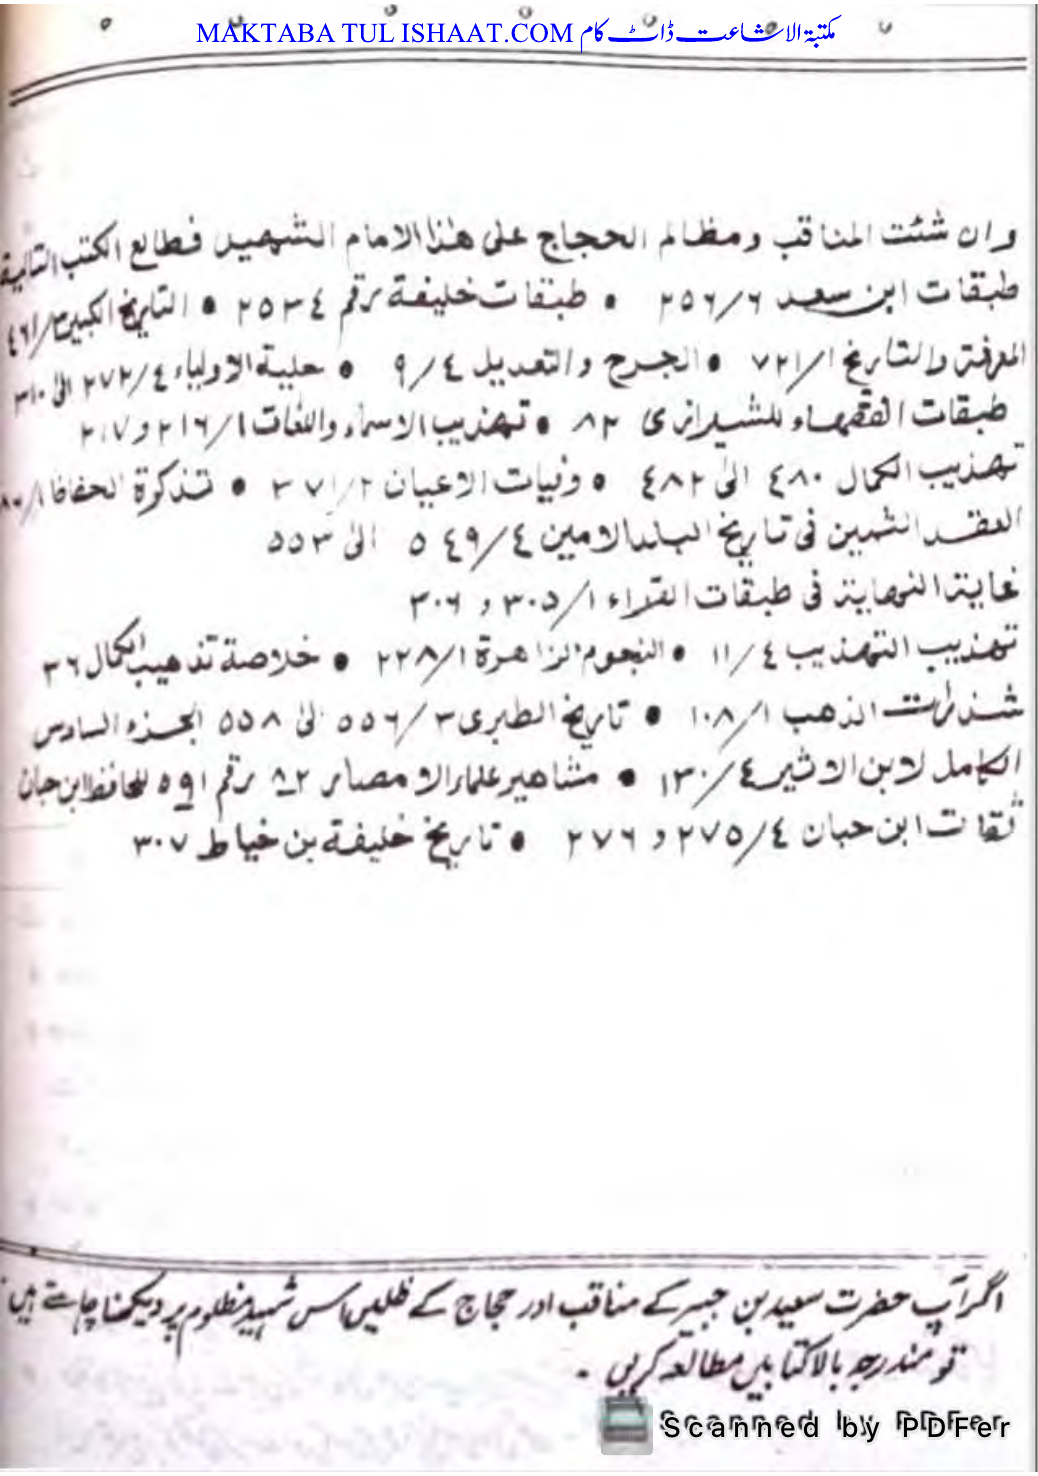 MAKTABA TUL ISHAAT.COM مکتبۃ الاشاعت ڈاٹ کام
وان شئت المناقب ومظالم الحجاج علی ھذا الامام الشھید فطالع الکتب التالیة
طبقات ابن سعد ٢٥٦/٦ • طبقات خلیفة رقم ٢٥٣٤ • التاریخ الکبیر ٤٦١/٣
المعرفة والتاریخ ٧٢١/١ • الجرح والتعدیل ٩/٤ • حلیة الاولیاء ٢٧٢/٤ الی ٣١٠
طبقات الفقھاء للشیرازی ٨٢ • تھذیب الاسماء واللغات ٢١٦/١ و ٢١٧
تھذیب الکمال ٤٨٠ الی ٤٨٢ • وفیات الاعیان ٣٧١/٢ • تذکرة الحفاظ
العقد الثمین فی تاریخ البلد الامین ٥٤٩/٤ الی ٥٥٣
غایة النھایة فی طبقات القراء ٣٠٥/١ و ٣٠٦
تھذیب التھذیب ١١/٤ • النجوم الزاھرة ٢٢٨/١ • خلاصة تذھیب الکمال ٣٦
شذرات الذھب ١٠٨/١ • تاریخ الطبری ٥٥٦/٣ الی ٥٥٨ الجزء السادس
الکامل لابن الاثیر ١٣٠/٤ • مشاھیر علماء الامصار ٨٢ رقم ٥٩١ للحافظ ابن حبان
ثقات ابن حبان ٢٧٥/٤ و ٢٧٦ • تاریخ خلیفة بن خیاط ٣٠٧
اگر آپ حضرت سعید بن جبیر کے مناقب اور حجاج کے ظلم اس شہید مظلوم پر دیکھنا چاہتے ہیں
تو مندرجہ بالا کتابیں مطالعہ کریں ۔
Scanned by PDFer